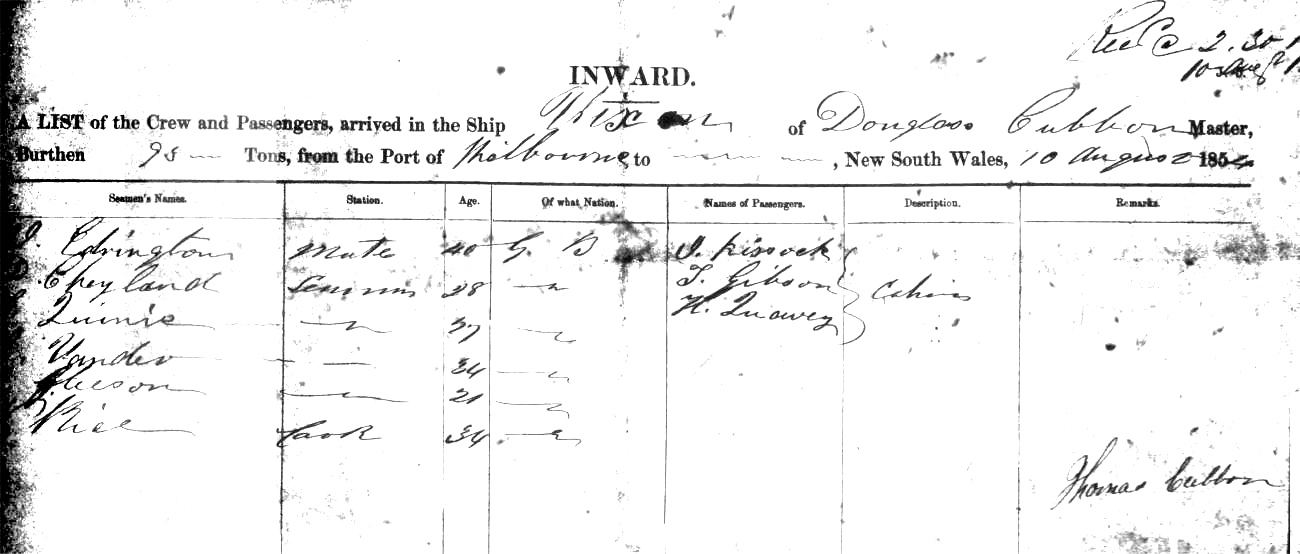 Rec'd 2.30
10 Aug
INWARD.
A LIST of the Crew and Passengers, arrived in the Ship Vixen of Douglass Cubbon Master,
Burthen 98 Tons, from the Port of Melbourne to , New South Wales, 10 August 1854
Seamen's Names. Station. Age. Of what Nation. Names of Passengers. Description. Remarks.
Edrington Mate 40 G. B J. Kissock
Cheyland Seaman 28 T. Gibson Cabin
Quinie 37
Vander 24
21
Cook 34
Thomas Cubbon